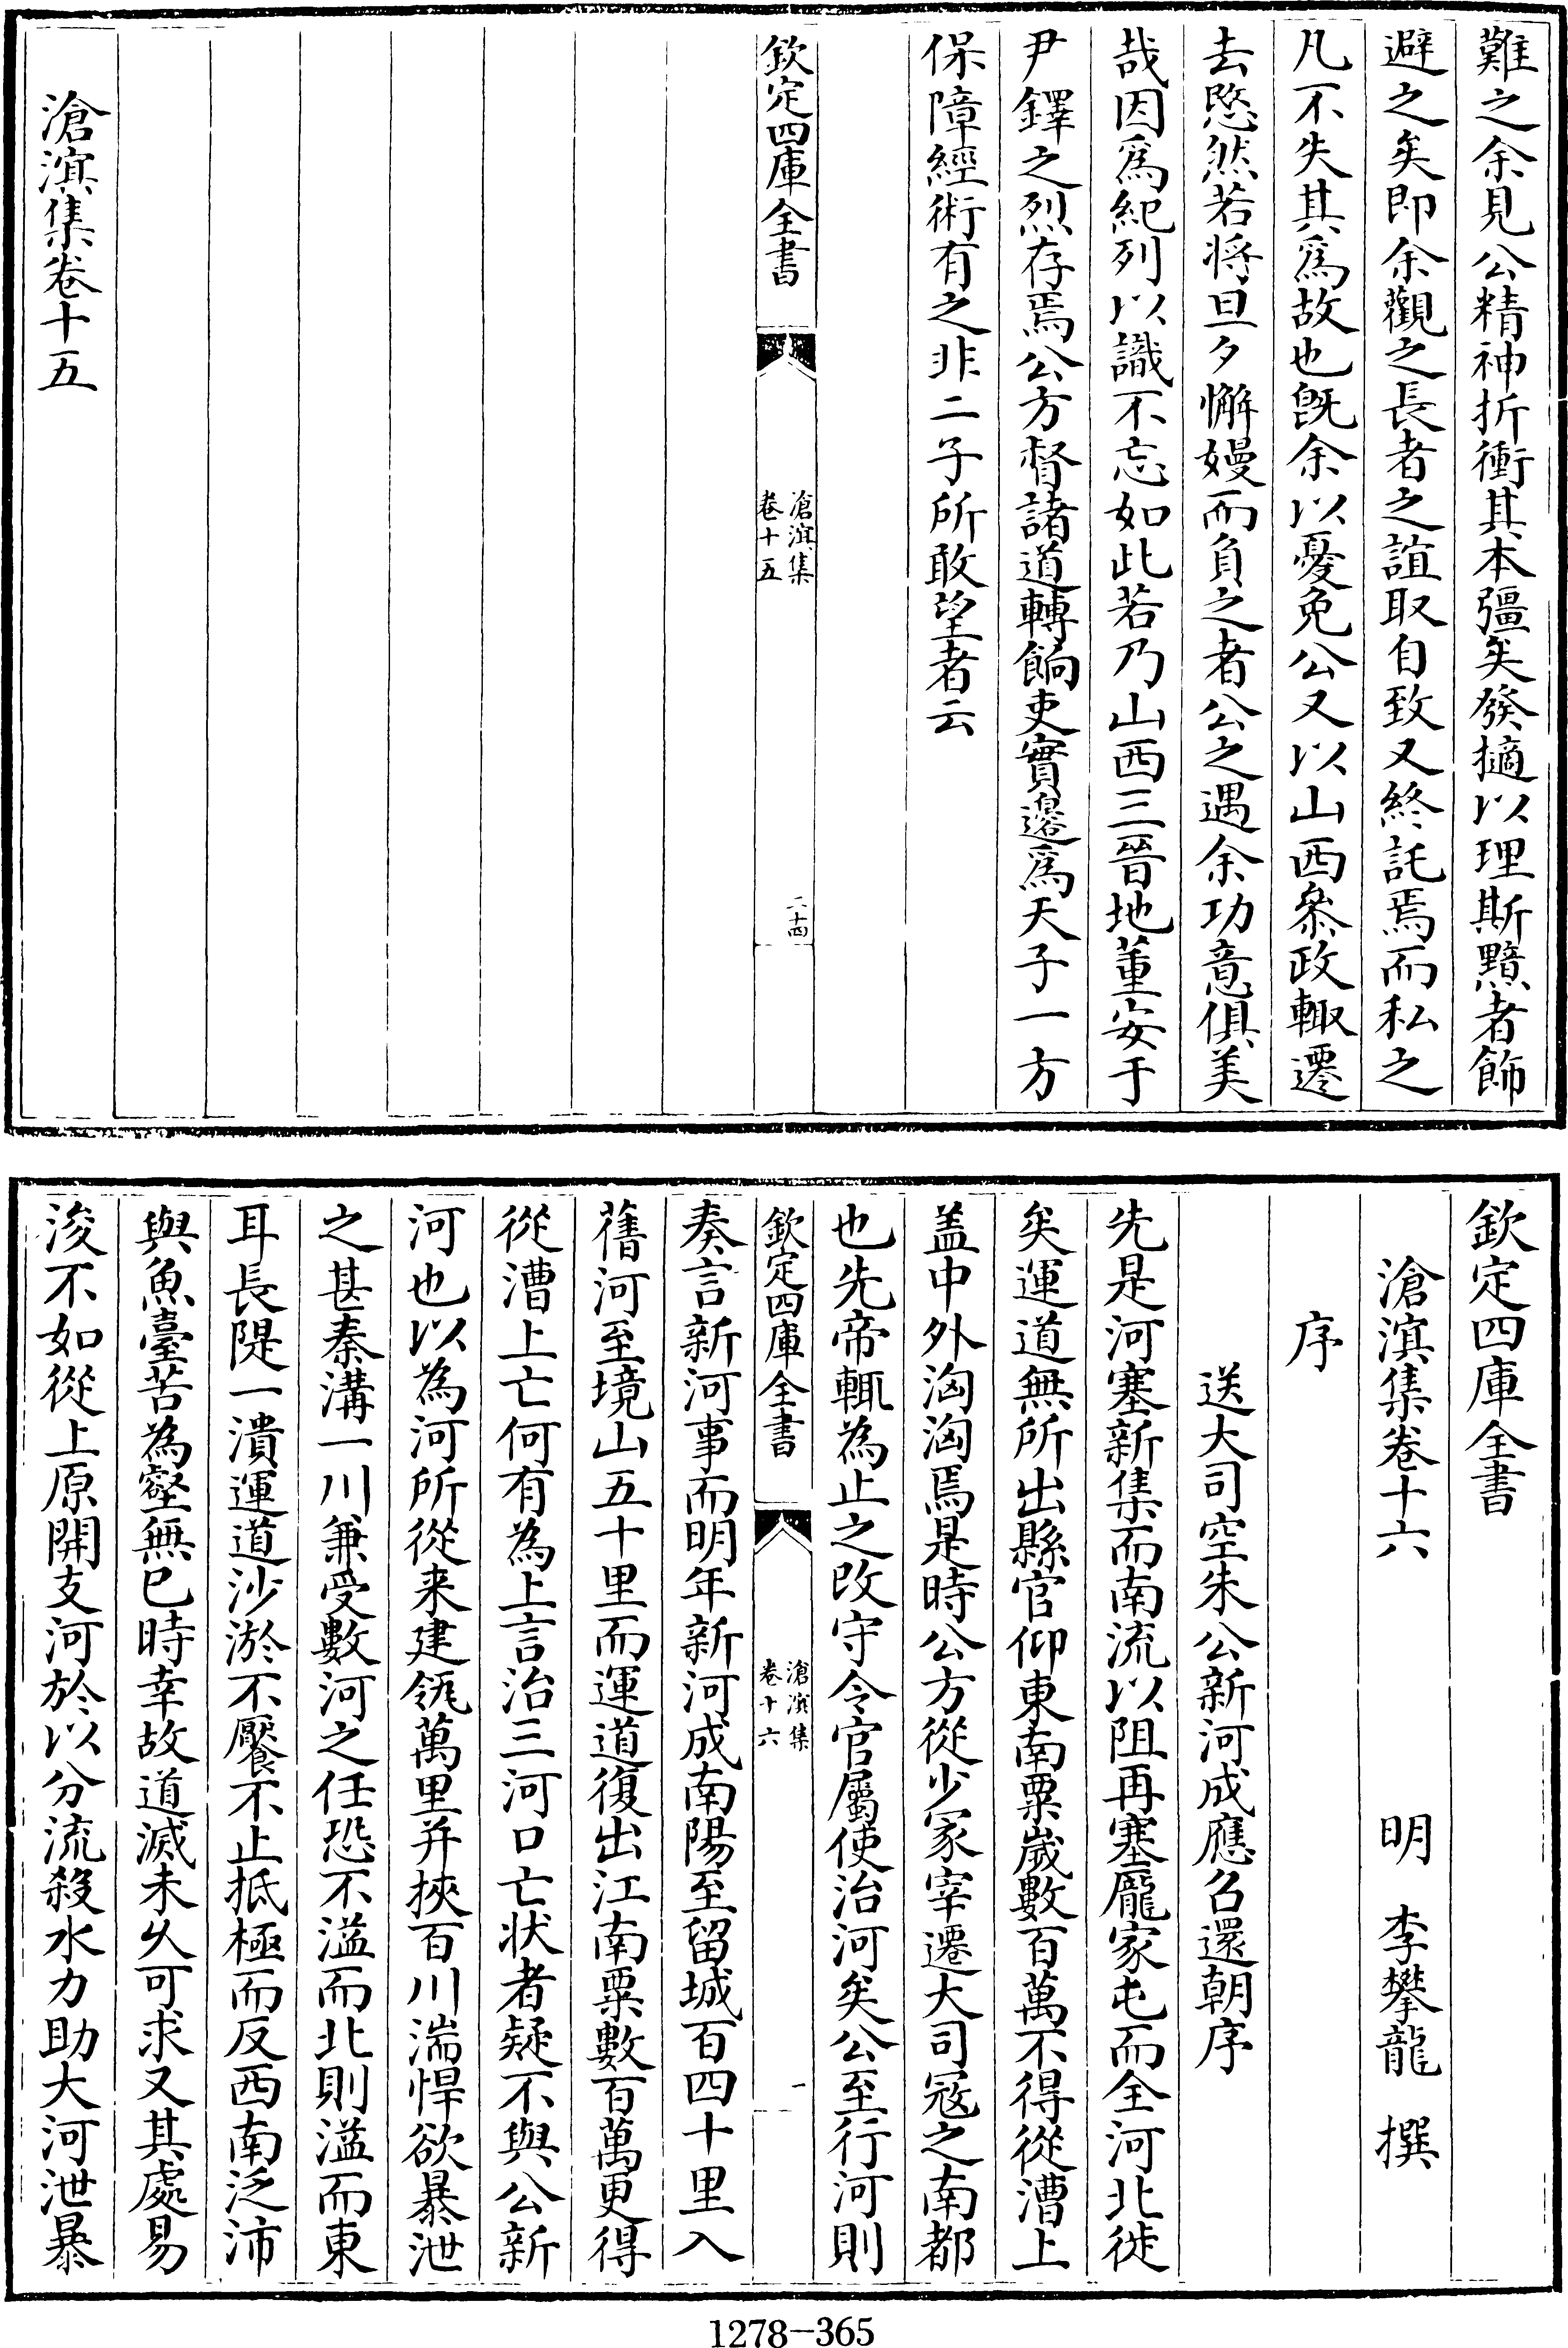 難之余見公精神折衝其本彊矣發擿以理斯黠者飾
避之矣即余觀之長者之誼取自致又終託焉而私之
凡不失其爲故也旣余以憂免公又以山西叅政輙遷
去愍然若將旦夕懈嫚而負之者公之遇余功意俱美
哉因爲紀列以識不忘如此若乃山西三晉地董安于
尹鐸之烈存焉公方督諸道轉餉吏實邊爲天子一方
保障經術有之非二子所敢望者云
欽定四庫全書
滄溟集
卷十五
二十四
滄溟集卷十五
欽定四庫全書
滄溟集卷十六
明 李攀龍 撰
序
送大司空朱公新河成應召還朝序
先是河塞新集而南流以阻再塞龐家屯而全河北徙
矣運道無所出縣官仰東南粟嵗數百萬不得從漕上
盖中外洶洶焉是時公方從少冢宰遷大司寇之南都
也先帝輒為止之改守令官屬使治河矣公至行河則
欽定四庫全書
滄溟集
卷十六
一
奏言新河事而明年新河成南陽至留城百四十里入
舊河至境山五十里而運道復出江南粟數百萬更得
從漕上亡何有為上言治三河口亡状者疑不與公新
河也以為河所從来建瓴萬里并挾百川湍悍欲暴泄
之甚秦溝一川兼受數河之任恐不溢而北則溢而東
耳長隄一潰運道沙淤不饜不止抵極而反西南泛沛
與魚臺苦為壑無已時幸故道滅未乆可求又其處易
浚不如從上原開支河於以分流殺水力助大河泄暴
1278-365